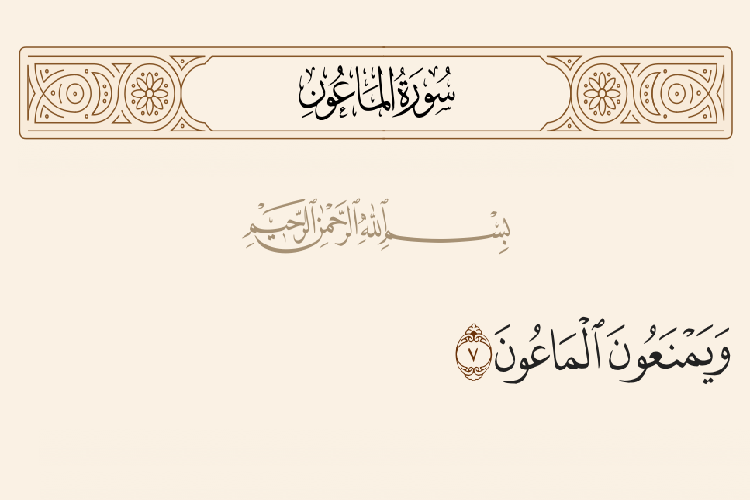 سُورَةُ المَاعُونِ
بِسْمِ ٱللَّهِ ٱلرَّحْمَٰنِ ٱلرَّحِيمِ
وَيَمْنَعُونَ ٱلْمَاعُونَ ٧